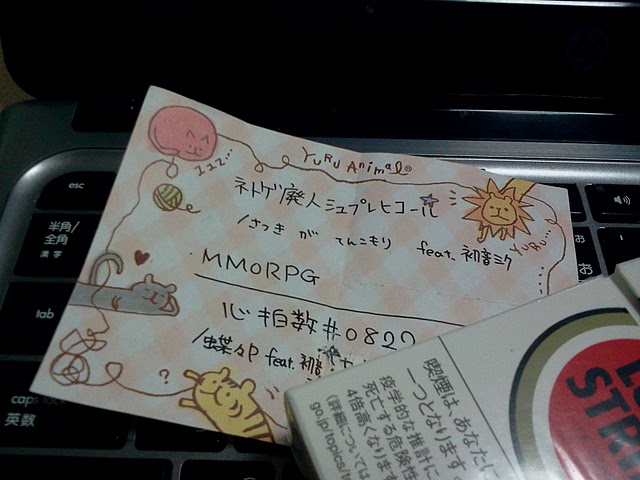 esc
半角/
全角
漢字
tab
caps lo
英数
お
YURU Animal®
zzz...
ネトゲ廃人シュプレヒコール
/さつき が てんこもり feat. 初音ミク
YURU...
MMORPG
心拍数#0822
/蝶々P feat. 初音
?
喫煙は、あなたに
一つとなります。
疫学的な推計に
死亡する危険性
4倍高くなります
(詳細については
go.jp/topics/t
LU
STRI